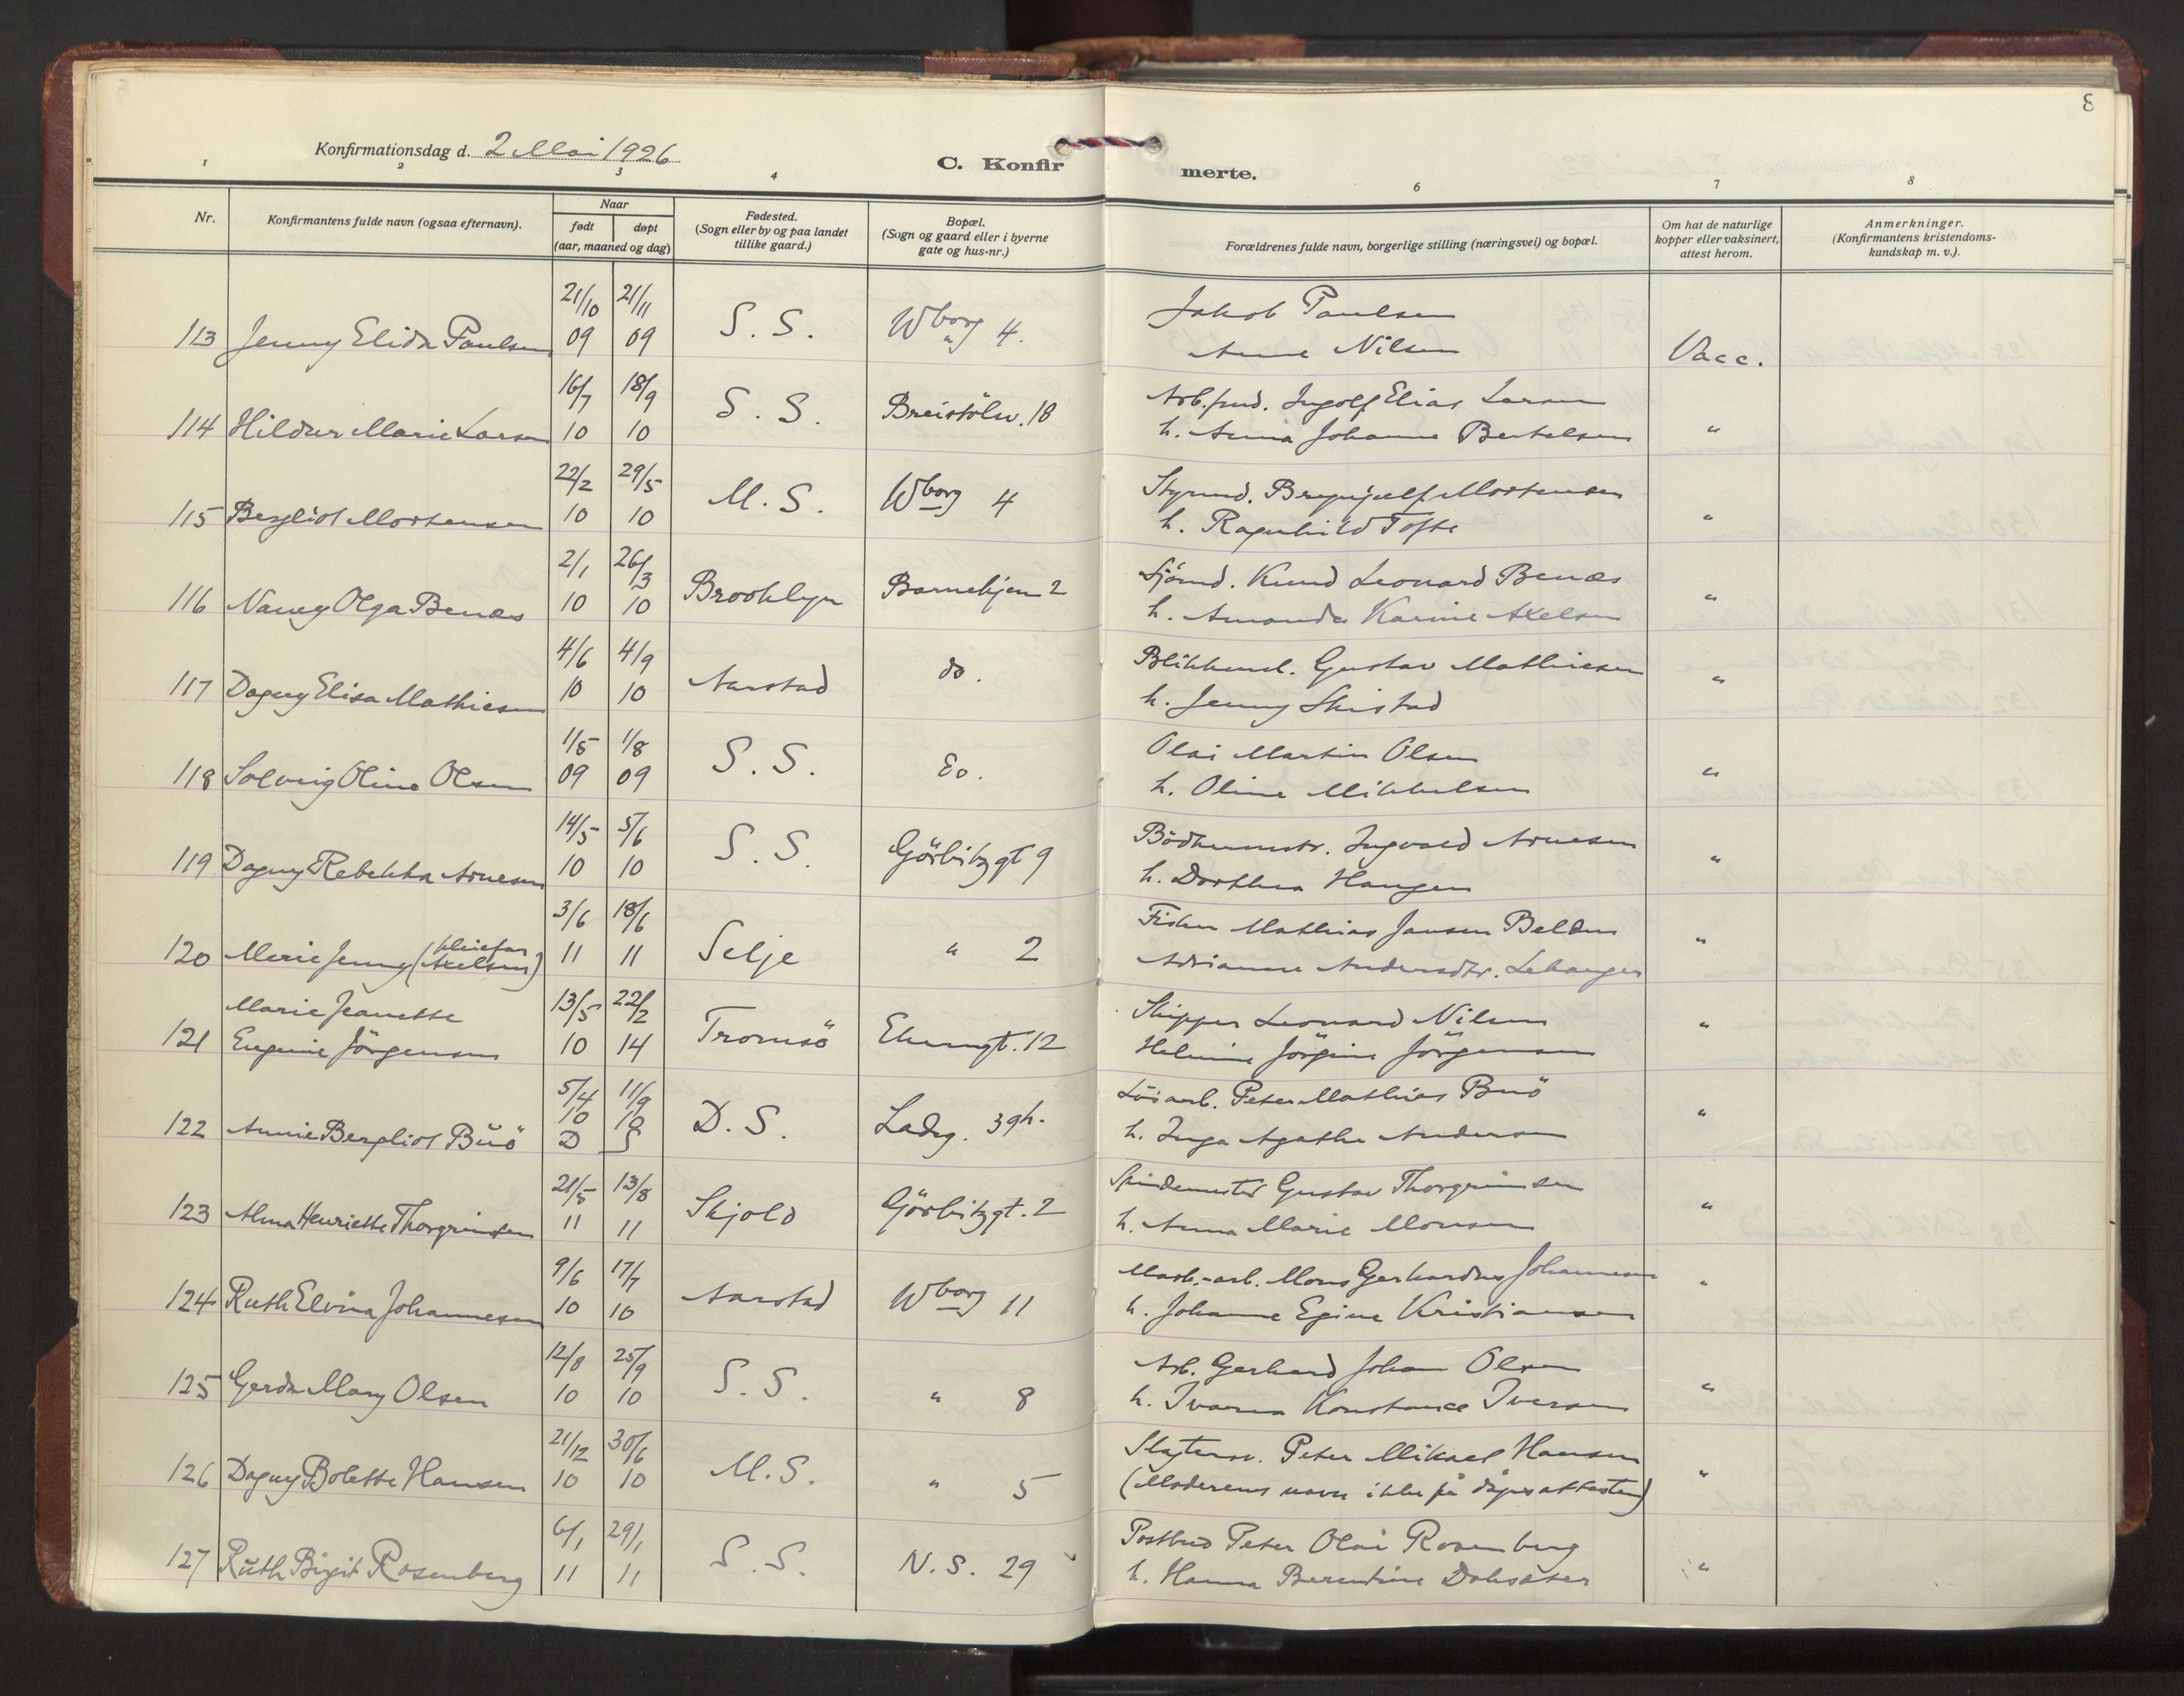 8
Konfirmationsdag d. 2 Mai 1926
C. Konfir
merte.
1 2 3 4 6 7 8
Nr.
Konfirmantens fulde navn (ogsaa efternavn).
Naar
født døpt
(aar, maaned og dag)
Fødested.
(Sogn eller by og paa landet
tillike gaard.)
Bopæl.
(Sogn og gaard eller i byerne
gate og hus-nr.)
Forældrenes fulde navn, borgerlige stilling (næringsvei) og bopæl.
Om hat de naturlige
kopper eller vaksinert,
attest herom.
Anmerkninger.
(Konfirmantens kristendoms-
kundskap m. v.).
21/10 21/11 Jakob Paulsen
113 Jenny Elida Paulsen 09 09 S. S. Wborg 4. Anna Nilsen Vacc.
16/7 18/9 Arb.fmd. Ingolf Elias Larsen
114 Hildur Marie Larsen 10 10 S. S. Breistölsv. 18 h. Anna Johanne Bertelsen "
22/2 29/5 Styrmd. Brynjulf Mortensen
115 Bergliot Mortensen 10 10 M. S. Wborg 4 h. Ragnhild Tofte "
2/1 26/3 Sjömd. Knud Leonard Benæs
116 Nancy Olga Benæs 10 10 Brooklyn Barnehjem 2 h. Amanda Karine Axelsen "
4/6 4/9 Blikkensl. Gustav Mathiesen
117 Dagny Elisa Mathiesen 10 10 Aarstad do. h. Jenny Skistad "
1/5 1/8 Olai Martin Olsen
118 Solveig Oline Olsen 09 09 S. S. Do. h. Oline Mikkelsen "
14/5 5/6 Bödkermstr. Ingvald Arnesen
119 Dagny Rebekka Arnesen 10 10 S. S. Görbitzgt 9 h. Dorthea Haugen "
3/6 18/6 Fisker Mathias Jansen Belden
120 Merie Jenny (Axelsen) 11 11 Selje " 2 Adrianne Andersdtr. Lehanger "
Marie Jeanette 13/5 22/2 Skipper Leonard Nilsen
121 Eugenie Jörgensen 10 14 Tromsö Elumgt. 12 Helmine Jörgine Jörgensen "
5/4 11/9 Lösarb. Peter Mathias Buö
122 Annie Bergliot Buö 10 10 D S D. S. Ladeg. 39h. h. Inga Agathe Andersen "
21/5 13/8 Spindemester Gustav Thorgrimsen
123 Alma Henriette Thorgrimsen 11 11 Skjold Görbitzgt. 2 h. Anna Marie Monsen "
9/6 17/7 Mask.-arb. Mons Gerhardus Johannesen
124 Ruth Elvina Johannesen 10 10 Aarstad Wborg 11 h. Johanne Egine Kristiansen "
12/8 25/9 Arb. Gerhard Johan Olsen
125 Gerda Mary Olsen 10 10 S. S. " 8 h. Ivarna Konstance Iversen "
21/12 30/6 Slagtersv. Peter Mikael Hansen
126 Dagny Bolette Hansen 10 10 M. S. " 5 (Moderens navn ikke på dåpsattesten) "
6/1 29/1 Postbud Peter Olai Rosenberg
127 Ruth Birgit Rosenberg 11 11 S. S. N. S. 29 h. Hanna Berentine Dalsæter "